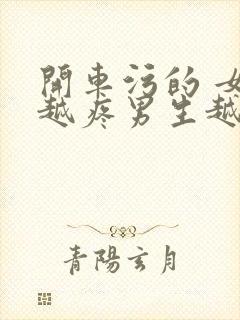 開車污的 女
越疼男生越
青陽玄月